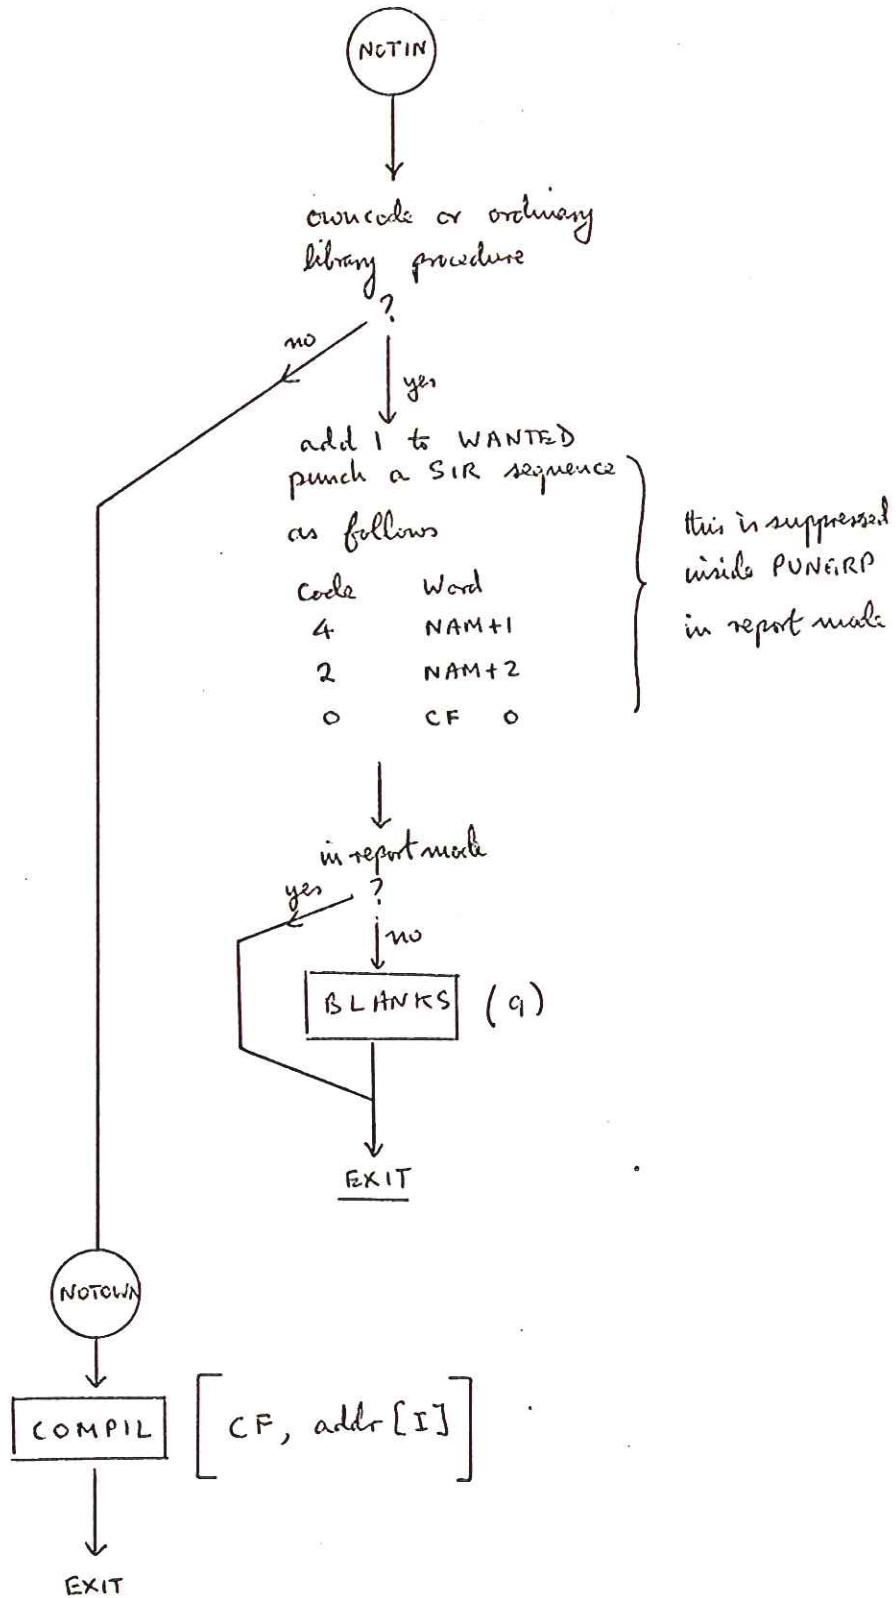 NOTIN
owncode or ordinary
library procedure
?
no
yes
add 1 to WANTED
punch a SIR sequence
as follows
Code Word
4 NAM+1
2 NAM+2
0 CF 0
this is suppressed
inside PUNGRP
in report mode
in report mode
?
yes
no
BLANKS (9)
EXIT
NOTOWN
COMPIL [CF, addr[I]]
EXIT